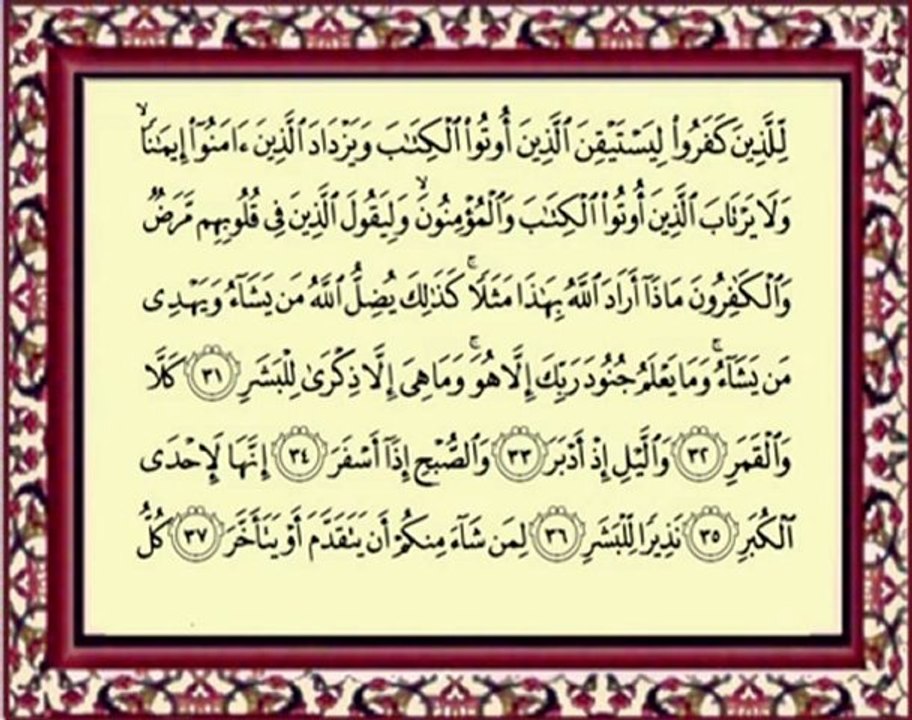 لِّلَّذِينَ كَفَرُوا۟ لِيَسْتَيْقِنَ ٱلَّذِينَ أُوتُوا۟ ٱلْكِتَـٰبَ وَيَزْدَادَ ٱلَّذِينَ ءَامَنُوٓا۟ إِيمَـٰنًا ۙ
وَلَا يَرْتَابَ ٱلَّذِينَ أُوتُوا۟ ٱلْكِتَـٰبَ وَٱلْمُؤْمِنُونَ ۙ وَلِيَقُولَ ٱلَّذِينَ فِى قُلُوبِهِم مَّرَضٌ
وَٱلْكَـٰفِرُونَ مَاذَآ أَرَادَ ٱللَّهُ بِهَـٰذَا مَثَلًا ۚ كَذَٰلِكَ يُضِلُّ ٱللَّهُ مَن يَشَآءُ وَيَهْدِى
مَن يَشَآءُ ۚ وَمَا يَعْلَمُ جُنُودَ رَبِّكَ إِلَّا هُوَ ۚ وَمَا هِىَ إِلَّا ذِكْرَىٰ لِلْبَشَرِ ٣١ كَلَّا
وَٱلْقَمَرِ ٣٢ وَٱلَّيْلِ إِذْ أَدْبَرَ ٣٣ وَٱلصُّبْحِ إِذَآ أَسْفَرَ ٣٤ إِنَّهَا لَإِحْدَى
ٱلْكُبَرِ ٣٥ نَذِيرًا لِّلْبَشَرِ ٣٦ لِمَن شَآءَ مِنكُمْ أَن يَتَقَدَّمَ أَوْ يَتَأَخَّرَ ٣٧ كُلُّ